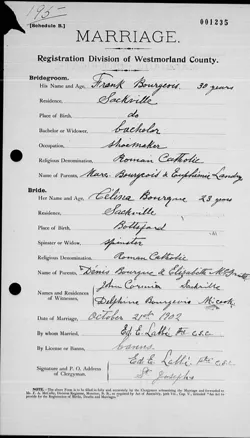 195
001235
[Schedule B.]
MARRIAGE.
Registration Division of Westmorland County.
Bridegroom.
His Name and Age, Frank Bourgeois. 30 years
Residence, Sackville
Place of Birth, do
Bachelor or Widower, bachelor
Occupation, shoemaker
Religious Denomination, Roman Catholic
Names of Parents, Marc Bourgeois & Euphémie Landry
Bride.
Her Name and Age, Célina Bourque 23 years
Residence, Sackville
Place of Birth, Bottsford
Spinster or Widow, spinster
Religious Denomination, Roman Catholic
Name of Parents, Denis Bourque & Elizabeth
Names and Residences of Witnesses, John Cormier Sackville
Delphine Bourgeois
Date of Marriage, October 21st 1902
By whom Married, Ed. E. Labbé Pt. c.s.c.
By License or Banns, banns
Signature and P. O. Address of Clergyman. Ed. E. Labbé Ptre c.s.c.
St Josephs